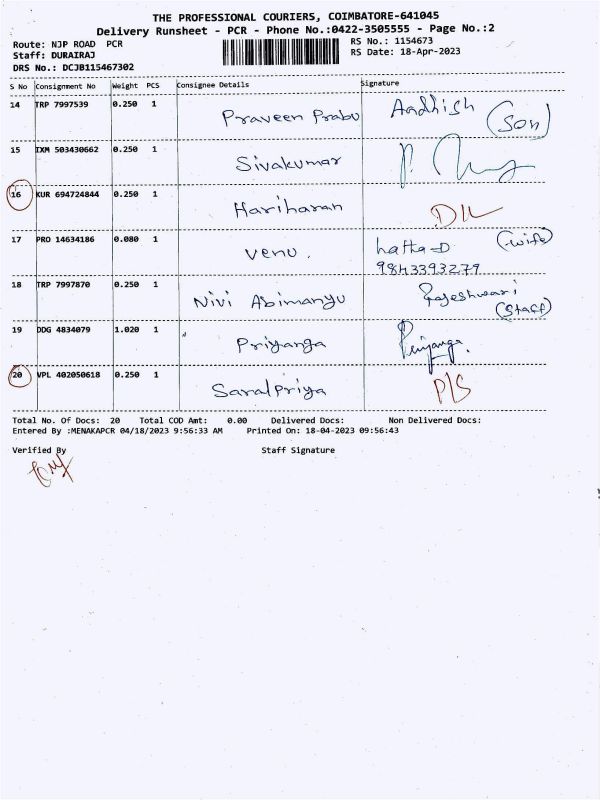 THE PROFESSIONAL COURIERS, COIMBATORE-641045
Delivery Runsheet - PCR - Phone No.:0422-3505555 - Page No.:2
Route: NJP ROAD PCR RS No.: 1154673
Staff: DURAIRAJ RS Date: 18-Apr-2023
DRS No.: DCJB115467302
S No Consignment No Weight PCS Consignee Details Signature
14 TRP 7997539 0.250 1 Praveen Prabu Aadhish (Son)
15 IXM 503430662 0.250 1 Sivakumar
16 KUR 694724844 0.250 1 Hariharan D/L
17 PRO 14634186 0.080 1 Venu. (wife)
9843393279
18 TRP 7997870 0.250 1 Nivi Abimanyu Rajeshwari
(Staff)
19 DDG 4834079 1.020 1 Priyanga Priyanga.
20 VPL 402050618 0.250 1 SaralPriya P/S
Total No. Of Docs: 20 Total COD Amt: 0.00 Delivered Docs: Non Delivered Docs:
Entered By :MENAKAPCR 04/18/2023 9:56:33 AM Printed On: 18-04-2023 09:56:43
Verified By Staff Signature